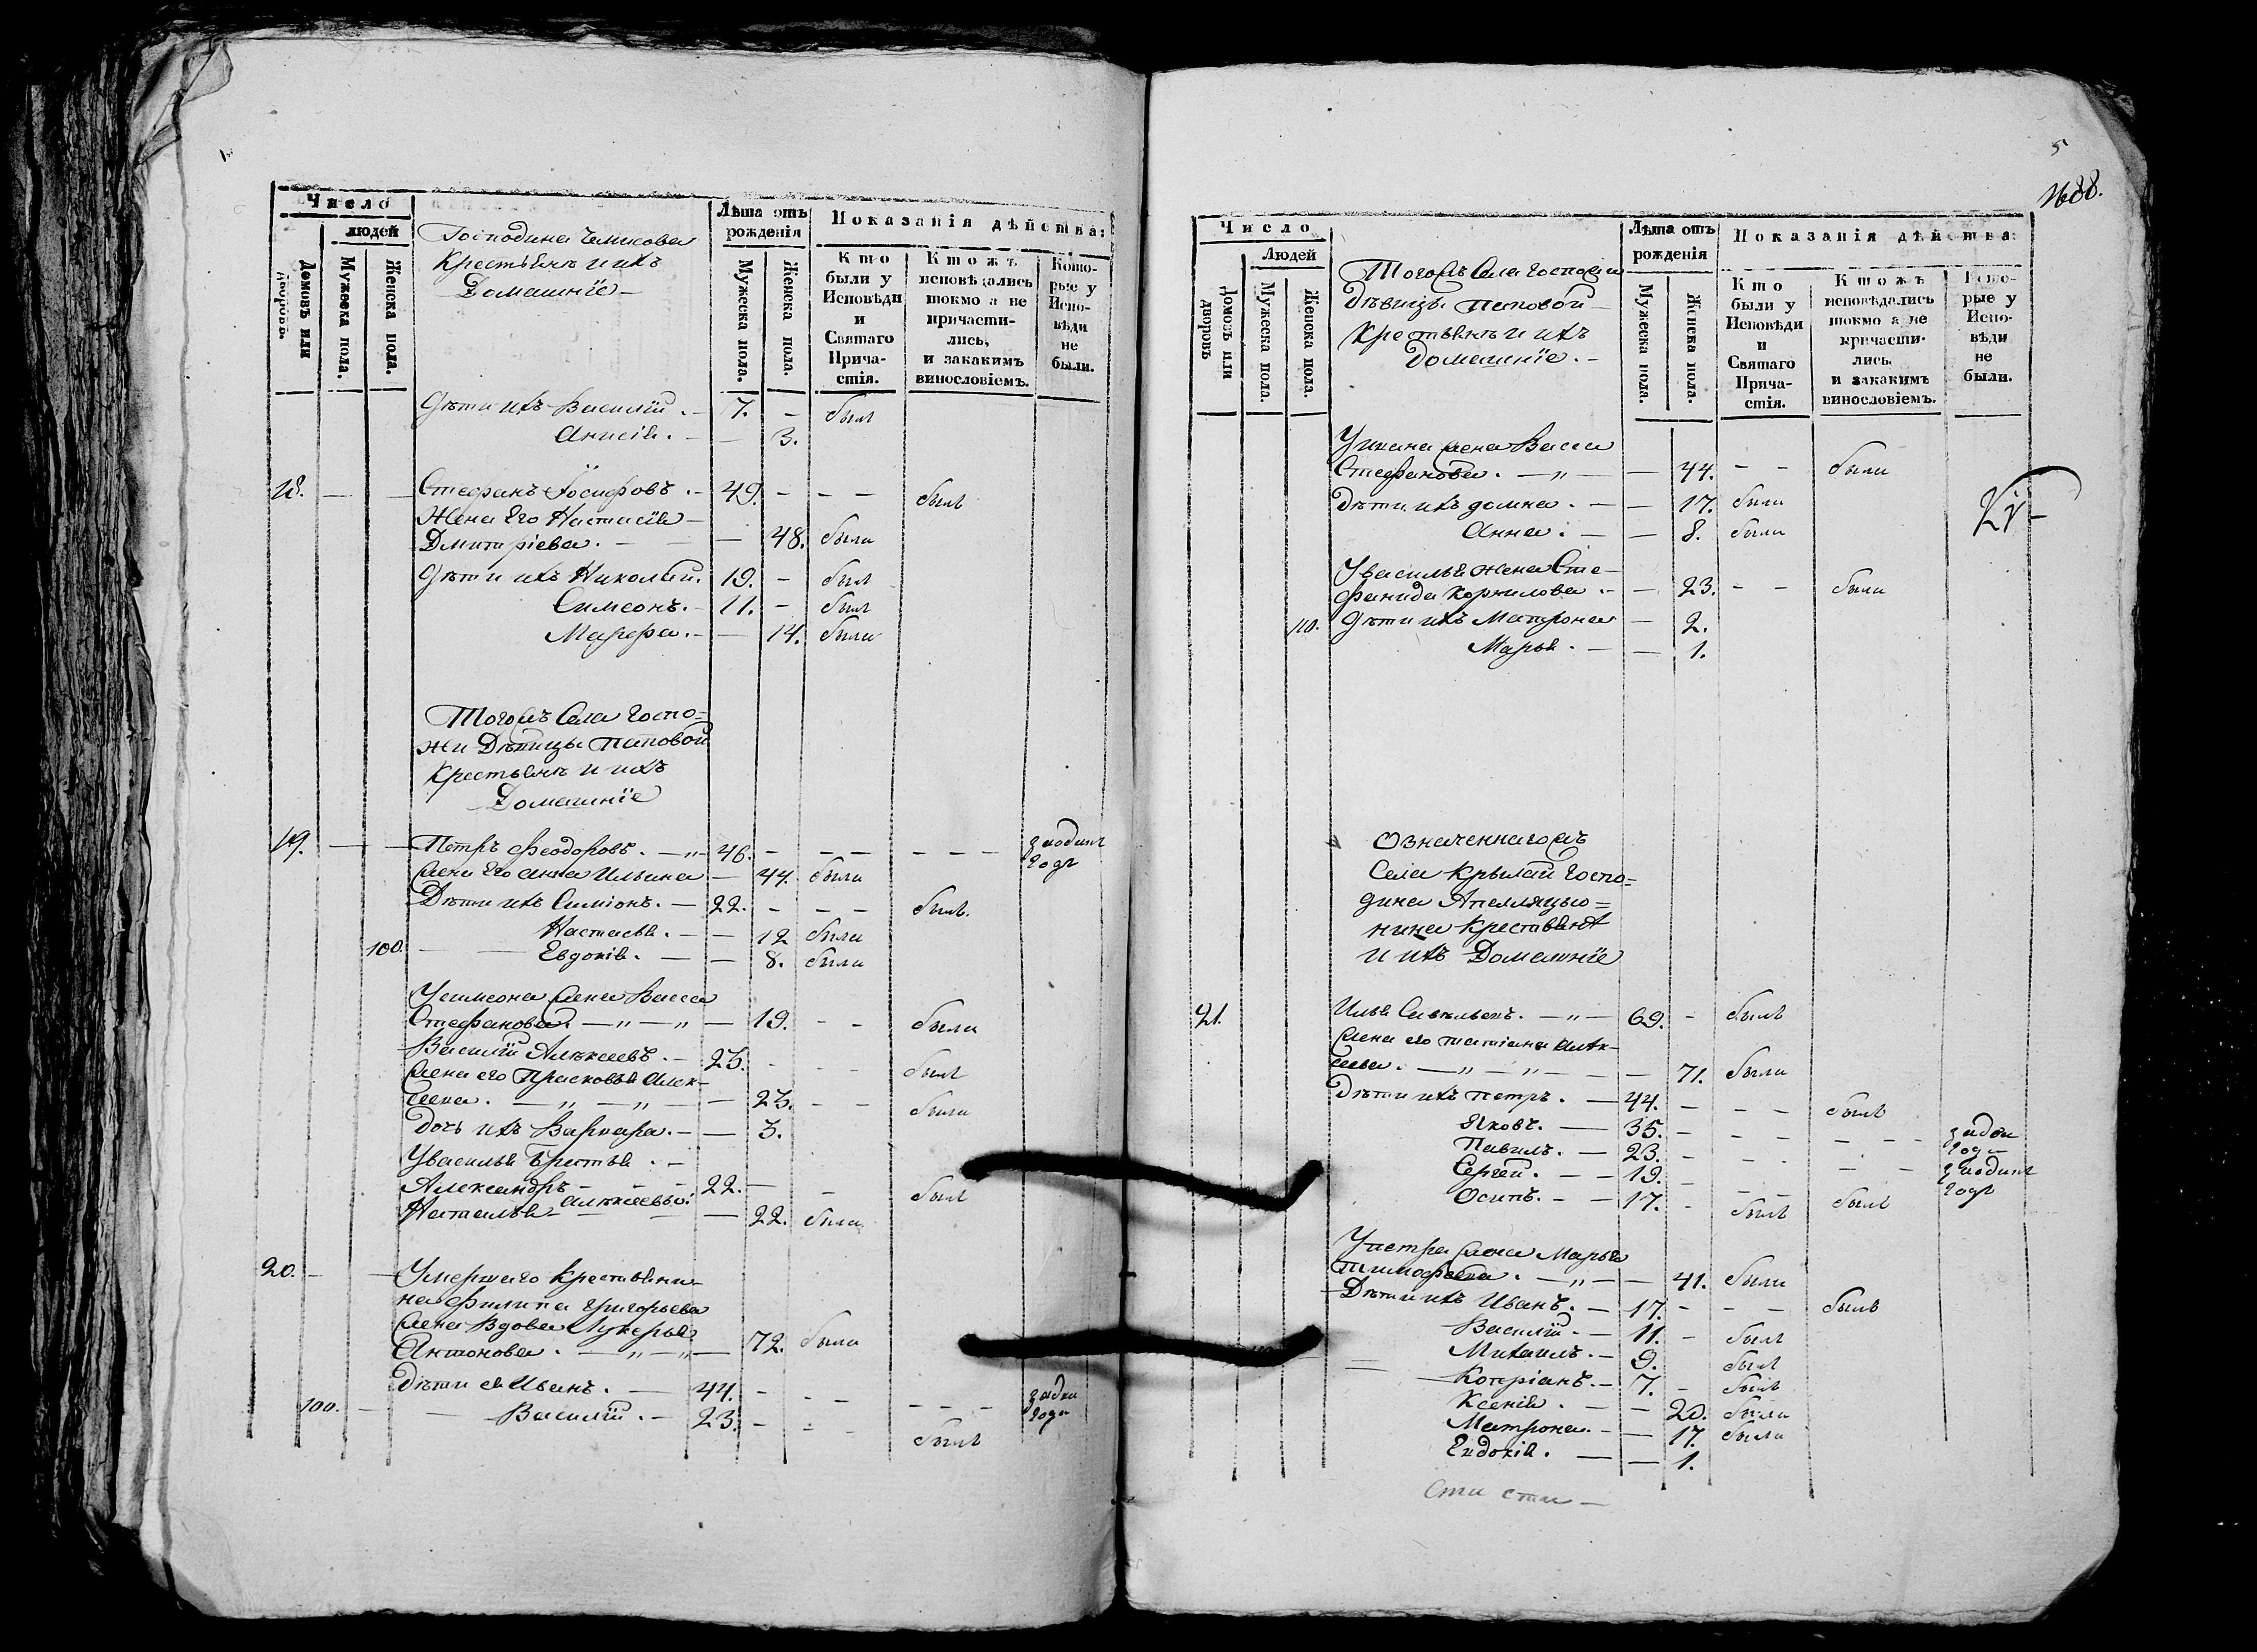 Число
людей
Домовъ или дворовъ.
Мужеска пола.
Женска пола.
Господина
Крестьянъ и ихъ
Домашнїе –
Лѣта отъ рожденія
Мужеска пола.
Женска пола.
Показанія дѣйства:
Кто были у Исповѣди и Святаго Прича-стія.
Ктожъ исповѣдались токмо а не причасти-лись, и закакимъ винословіемъ.
Кото-рые у Испо-вѣди не были.
Дѣти ихъ Василїй . – 7. – былъ
Анисія . – — 3.
18. — — Стефанъ Іосифовъ . – 49. – – – былъ
Жена Его Настасїя –
Дмитріева . — — — 48. была
Дѣти ихъ Николай. 19. – былъ
Симеонъ. – 11. – былъ
Марфа . – — 14. была
Тогожъ Села Госпо=
жи Дѣвицы Поповой
Крестьянъ и ихъ
Домашнїе
19. — — Петръ Феодоровъ . — „ – 46. – – – – – – заодинъ
годъ
жена Его Анна Ильина — 44. была
Дѣти ихъ Симіонъ. — 22. – – – былъ.
Настасья . – — 12 была
100. — — Евдокія . — — 8. была
Усимеона жена Васса
Стефанова. — „ — „ — 19. – – была
Василїй Алексеевъ . – 25. – – – былъ
жена его Прасковья Алек-
сеева . — „ — „ — — 23. – – была
Дочь ихъ Варвара. – — 3.
Увасилья братья . –
Александръ – – – 22. — – былъ
Алексеевы:
Наталья – — — — 22. была
20. – — Умершаго Крестьяни-
на Филипа Григорьева
жена вдова Лукерья
Антонова . — „ — „ — 72. была
Дѣти ея Иванъ . — 44. – – – – – – задва
года
100. — — Василїй . – 23. – – – былъ
5
1688.
Число
Людей
Домовъ или дворовъ
Мужеска пола.
Женска пола.
Тогожъ Села Госпожи
Дѣвицы Поповой –
Крестьянъ и ихъ
Домашнїе . –
Лѣта отъ рожденія
Мужеска пола.
Женска пола.
Показанія дѣйства
Кто были у Исповѣди и Святаго Прича-стія.
Ктожъ исповѣдались токмо а не причасти-лись, и закакимъ винословіемъ.
Кото-рые у Испо-вѣди не были.
жена Васса
Стефанова . — „ — — 44. – – была
Дѣти ихъ домна . – — 17. была
Анна . – — 8. была
Увасилья жена Сте-
фанида Корнилова . – — 23. – – была
110. Дѣти ихъ Матрона — 2.
Марья . – — 1.
Означеннагожъ
Села Крылай Госпо=
дина Апелляцыо=
нина Крестьянъ
и ихъ Домашнїе
21. Илья Савельевъ . — „ — 69. – былъ
жена его татіана Алек-
сеева . — „ — „ — — 71. была
Дѣти ихъ Петръ . — 44. – – – былъ
Яковъ. — 35. – – – – – задва
года
Павилъ. – 23. – – – – – заодинъ
годъ
Сергей . – 19. – – – былъ
Осипъ. – — 17. – былъ
Упетра жена Марья
Тимофеева . — „ — — 41. была
Дѣти ихъ Иванъ . – 17. – – – былъ
Василїй . – 11. – былъ
Михаилъ . – 9. былъ
Копріанъ. – 7. – былъ
Ксенія . – — 20. была
Матрона. – — 17. была
Евдокія . – — 1.